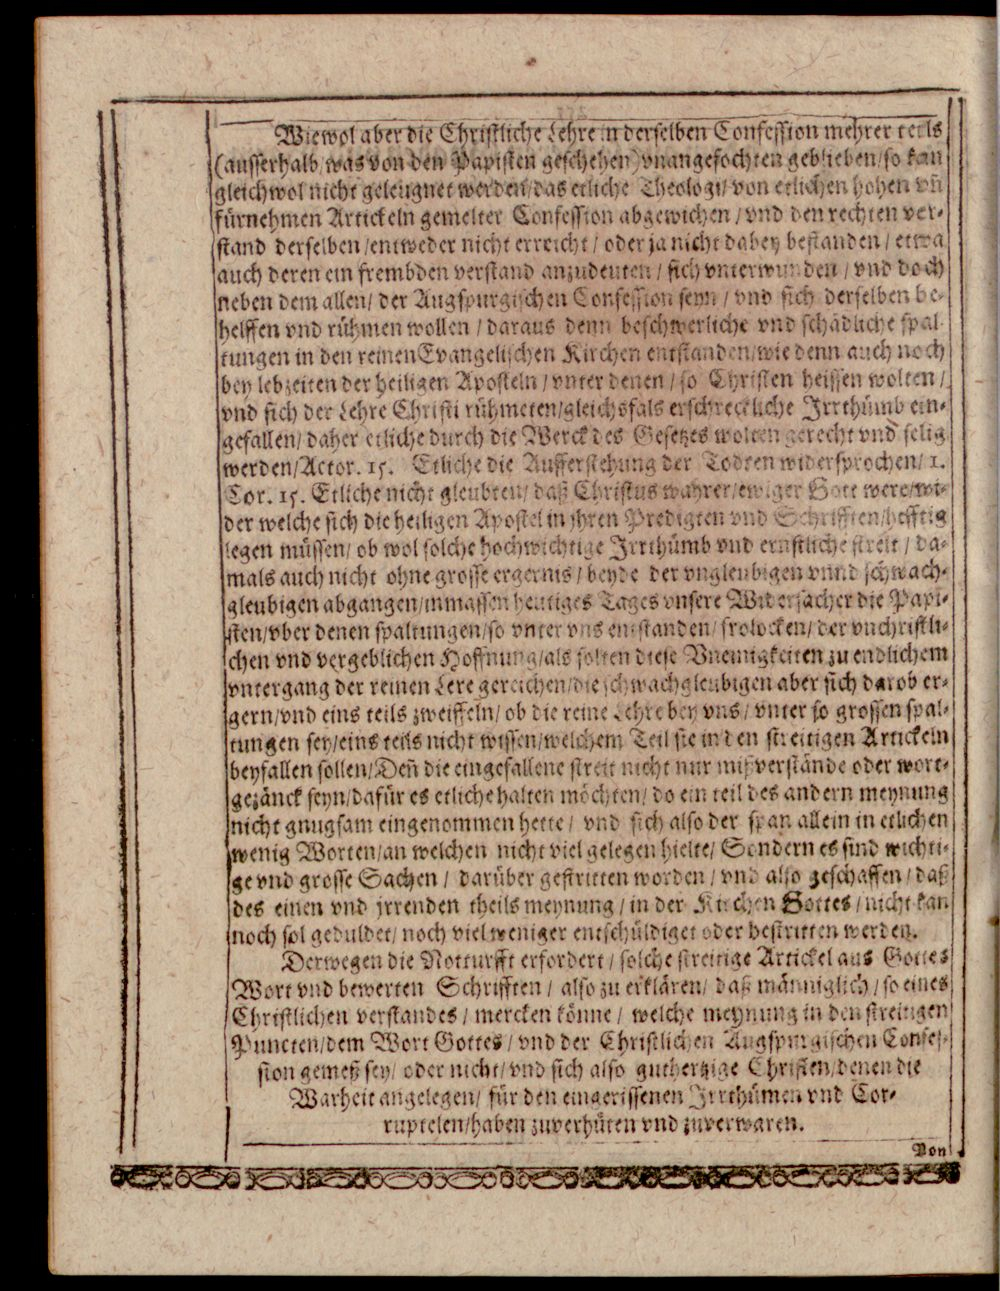 Wiewol aber die Christliche Lehre in derselben Confession mehrer teils
(ausserhalb/ was von den Papisten geschehen) vnangefochten geblieben/ so kan
gleichwol nicht geleugnet werden/ das etliche Theologi/ von etlichen hohen vñ
fürnehmen Artickeln gemelter Confession abgewichen / vnd den rechten ver-
stand derselben / entweder nicht erreicht / oder ja nicht dabey bestanden / etwa
auch deren ein frembden verstand anzudeuten / sich vnterwunden / vnd doch
neben dem allen/ der Augspurgischen Confession seyn / vnd sich derselben be-
helffen vnd rühmen wollen / daraus denn beschwerliche vnd schädliche spal-
tungen in den reinen Evangelischen Kirchen entstanden/ wie denn auch noch
bey lebzeiten der heiligen Aposteln / vnter denen / so Christen heissen wolten /
vnd sich der Lehre Christi rühmeten/ gleichsfals erschreckliche Irrthümb ein-
gefallen/ daher etliche durch die Werck des Gesetzes wolten gerecht vnd selig
werden/ Actor. 15. Etliche die Aufferstehung der Todten widersprochen/ 1.
Cor. 15. Etliche nicht gleubten/ daß Christus wahrer/ ewiger Gott were/ wi-
der welche sich die heiligen Apostel in jhren Predigten vnd Schrifften/ hefftig
legen müssen/ ob wol solche hochwichtige Irrthümb vnd ernstliche streit / da-
mals auch nicht ohne grosse ergernis / beyde der vngleubigen vnnd schwach-
gleubigen abgangen/ inmassen heutiges Tages vnsere Widersacher die Papi-
sten/ vber denen spaltungen/ so vnter vns entstanden/ frolocken/ der vnchristli-
chen vnd vergeblichen Hoffnung/ als solten diese Vneinigkeiten zu endlichem
vntergang der reinen Lere gereichen/ die schwachgleubigen aber sich darob er-
gern/ vnd eins teils zweiffeln/ ob die reine Lehre bey vns / vnter so grossen spal-
tungen sey/ eins teils nicht wissen/ welchem Teil sie in den streitigen Artickeln
beyfallen sollen/ Deñ die eingefallene streit nicht nur mißverstände oder wort-
gezänck seyn/ dafür es etliche halten möchten/ do ein teil des andern meynung
nicht gnugsam eingenommen hette / vnd sich also der span allein in etlichen
wenig Worten/ an welchen nicht viel gelegen hielte/ Sondern es sind wichti-
ge vnd grosse Sachen / darüber gestritten worden / vnd also geschaffen / daß
des einen vnd jrrenden theils meynung / in der Kirchen Gottes / nicht kan
noch sol geduldet/ noch viel weniger entschüldiget oder bestritten werden.
Derwegen die Notturfft erfordert / solche streitige Artickel aus Gottes
Wort vnd bewerten Schrifften / also zu erklären/ daß männiglich / so eines
Christlichen verstandes / mercken könne / welche meynung in den streitigen
Puncten/ dem Wort Gottes / vnd der Christlichen Augspurgischen Confes-
sion gemeß sey/ oder nicht/ vnd sich also guthertzige Christen/ denen die
Warheit angelegen/ für den eingerissenen Irrthümen vnd Cor-
ruptelen/ haben zuverhüten vnd zuverwaren.
Von